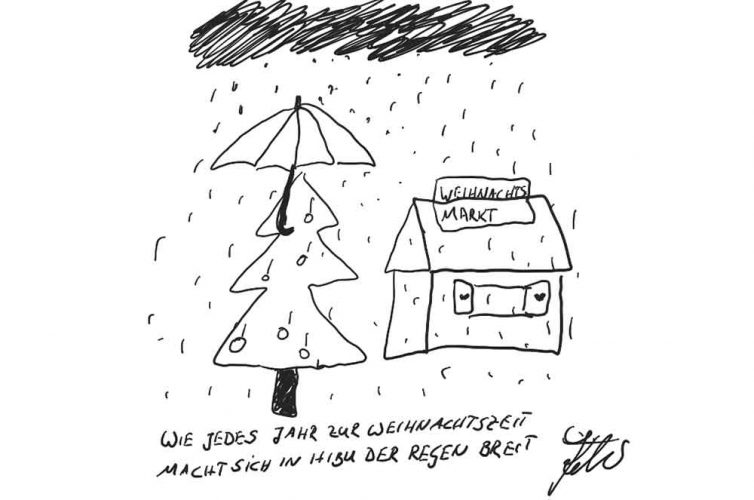 WEIHNACHTS
MARKT
WIE JEDES JAHR ZUR WEIHNACHTSZEIT
MACHT SICH IN HIBU DER REGEN BREIT